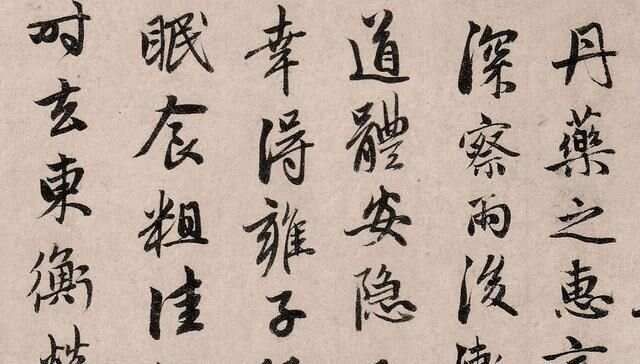 丹藥之惠
深察雨後
道體安隐
幸得雍子
眠食粗佳
时玄東衡